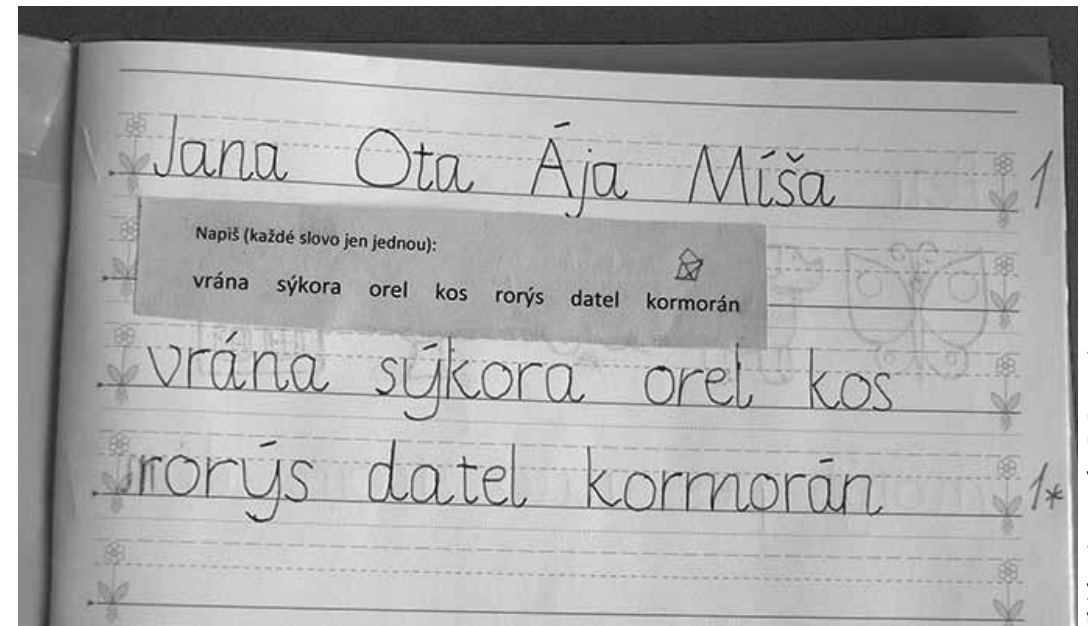 Jana Ota Ája Míša 1
Napiš (každé slovo jen jednou):
vrána sýkora orel kos rorýs datel kormorán
vrána sýkora orel kos
rorýs datel kormorán 1*